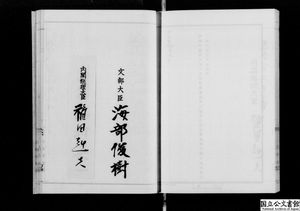 文部大臣
海部俊樹
内閣総理大臣
福田赳夫
国立公文書館
National Archives of Japan